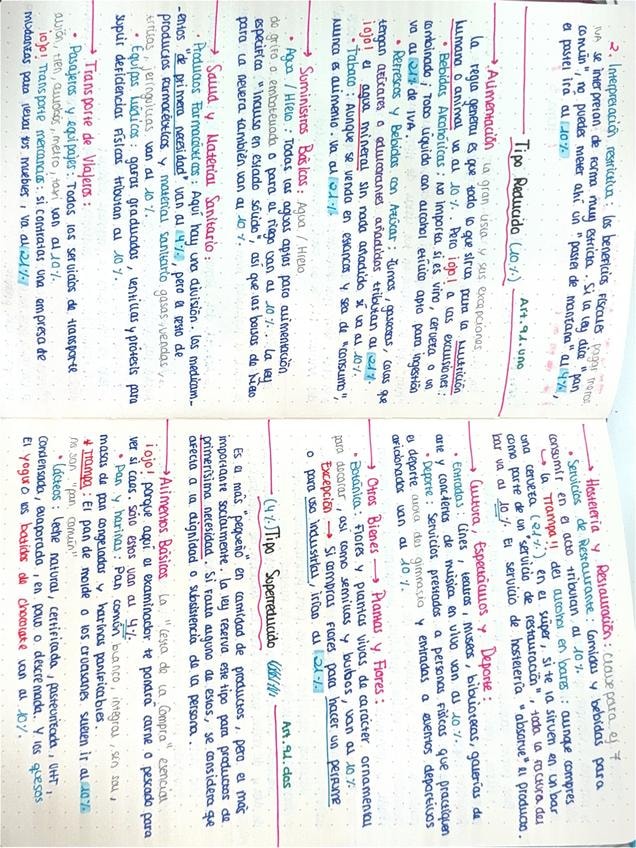 2. Interpretación restrictiva: los beneficios fiscales pagar menos
IVA se interpretan de forma muy estricta. Si la ley dice "pan
común" no puedes meter ahí un "pastel de manzana" al 4%,
el pastel irá al 10%
Tipo Reducido (10%) Art. 91. uno
→ Alimentación la gran lista y sus excepciones
La regla general es que todo lo que sirva para la nutrición
humana o animal va al 10%. Pero ¡ojo! a las exclusiones:
• Bebidas Alcohólicas: no importa si es vino, cerveza o un
combinado; todo líquido con alcohol etílico apto para ingestión
va al 21% de IVA.
• Refrescos y Bebidas con Azúcar: Zumos, gaseosas, colas que
tengan azúcares o edulcorantes añadidos tributan al 21%
¡ojo! el agua mineral sin nada añadido sí va al 10%.
• Tabaco: Aunque se venda en estancos y sea de "consumo",
nunca es alimento. va al 21%
→ Suministros Básicos: Agua / Hielo
• Agua / Hielo: Todas las aguas aptas para alimentación
do grifo o embotellada o para el riego van al 10%. La ley
especifica "incluso en estado sólido", así que las bolsas de hielo
para la nevera también van al 10%.
→ Salud y Material Sanitario:
• Productos Farmacéuticos: Aquí hay una división. Los medicam-
-entos "de primera necesidad" van al 4%, pero el resto de
productos farmacéuticos y material sanitario gasas, vendas,
tiritas, jeringuillas van al 10%.
• Equipos Médicos: gafas graduadas, lentillas y prótesis para
suplir deficiencias físicas tributan al 10%.
→ Transporte de Viajeros:
• Pasajeros y equipajes: Todos los servicios de transporte
avión, tren, autobús, metro, taxi van al 10%.
¡ojo! Transporte mercancías: si contratas una empresa de
mudanzas para llevar tus muebles, va al 21%
→ Hostelería y Restauración: clave para ej 7
• Servicios de Restaurante: Comidas y bebidas para
consumir en el acto tributan al 10%.
↳ la Trampa!! del alcohol en bares: aunque compres
una cerveza (21%) en el súper, si te la sirven en un bar
como parte de un "servicio de restauración", toda la factura del
bar va al 10%. El servicio de hostelería "absorve" el producto.
→ Cultura, Espectáculos y Deporte:
• Entradas: Cines, teatros, museos, bibliotecas, galerías de
arte y conciertos de música en vivo van al 10%.
• Deporte: Servicios prestados a personas físicas que practiquen
el deporte cuota del gimnasio y entradas a eventos deportivos
aficionados van al 10%.
→ Otros Bienes → Plantas y Flores:
• Botánica: Flores y plantas vivas, de carácter ornamental
para decorar, así como semillas y bulbos, van al 10%.
Excepción → Si compras flores para hacer un perfume
o para uso industrial, irían al 21%.
(4%) Tipo Superreducido Art. 91. dos
Es el más "pequeño" en cantidad de productos, pero el más
importante socialmente. La ley reserva este tipo para productos de
primerísima necesidad. Si falla alguno de estos, se considera que
afecta a la dignidad o subsistencia de la persona.
→ Alimentos Básicos La "Cesta de la Compra" esencial
¡ojo! porque aquí el examinador te pondrá carne o pescado para
ver si caes. Solo estos van al 4%.
• Pan y harinas: Pan común blanco, integral, sin sal,
masas de pan congeladas y harinas panificables
* Trampa: El pan de molde o los cruasanes suelen ir al 10%
no son "pan común"
• Lácteos: leche natural, certificada, pasteurizada, UHT,
condensada, evaporada, en polvo o descremada. Y los quesos
El yogur o los batidos de chocolate van al 10%.